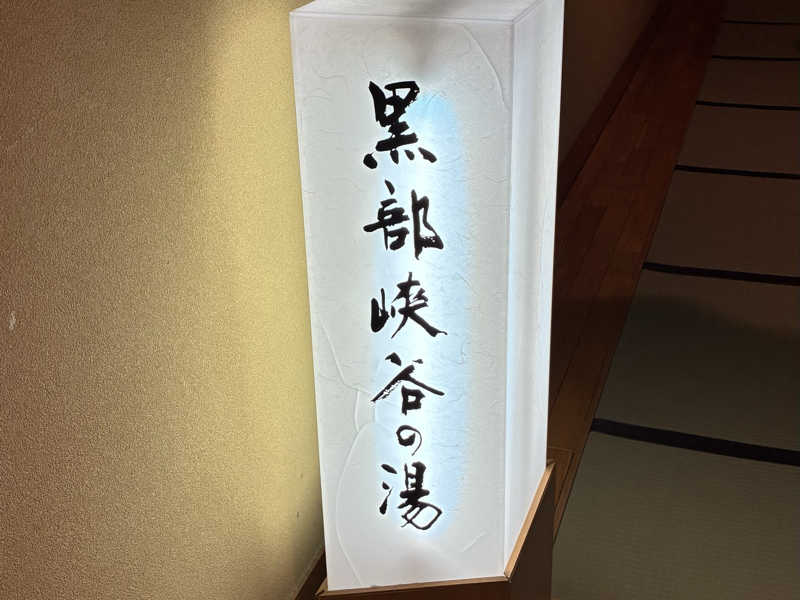 黒部峡谷の湯